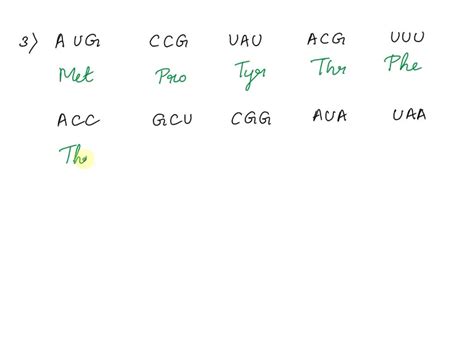 3) AUG CCG UAU ACG UUU
Met Pro Tyr Thr Phe
ACC GCU CGG AUA UAA
Th